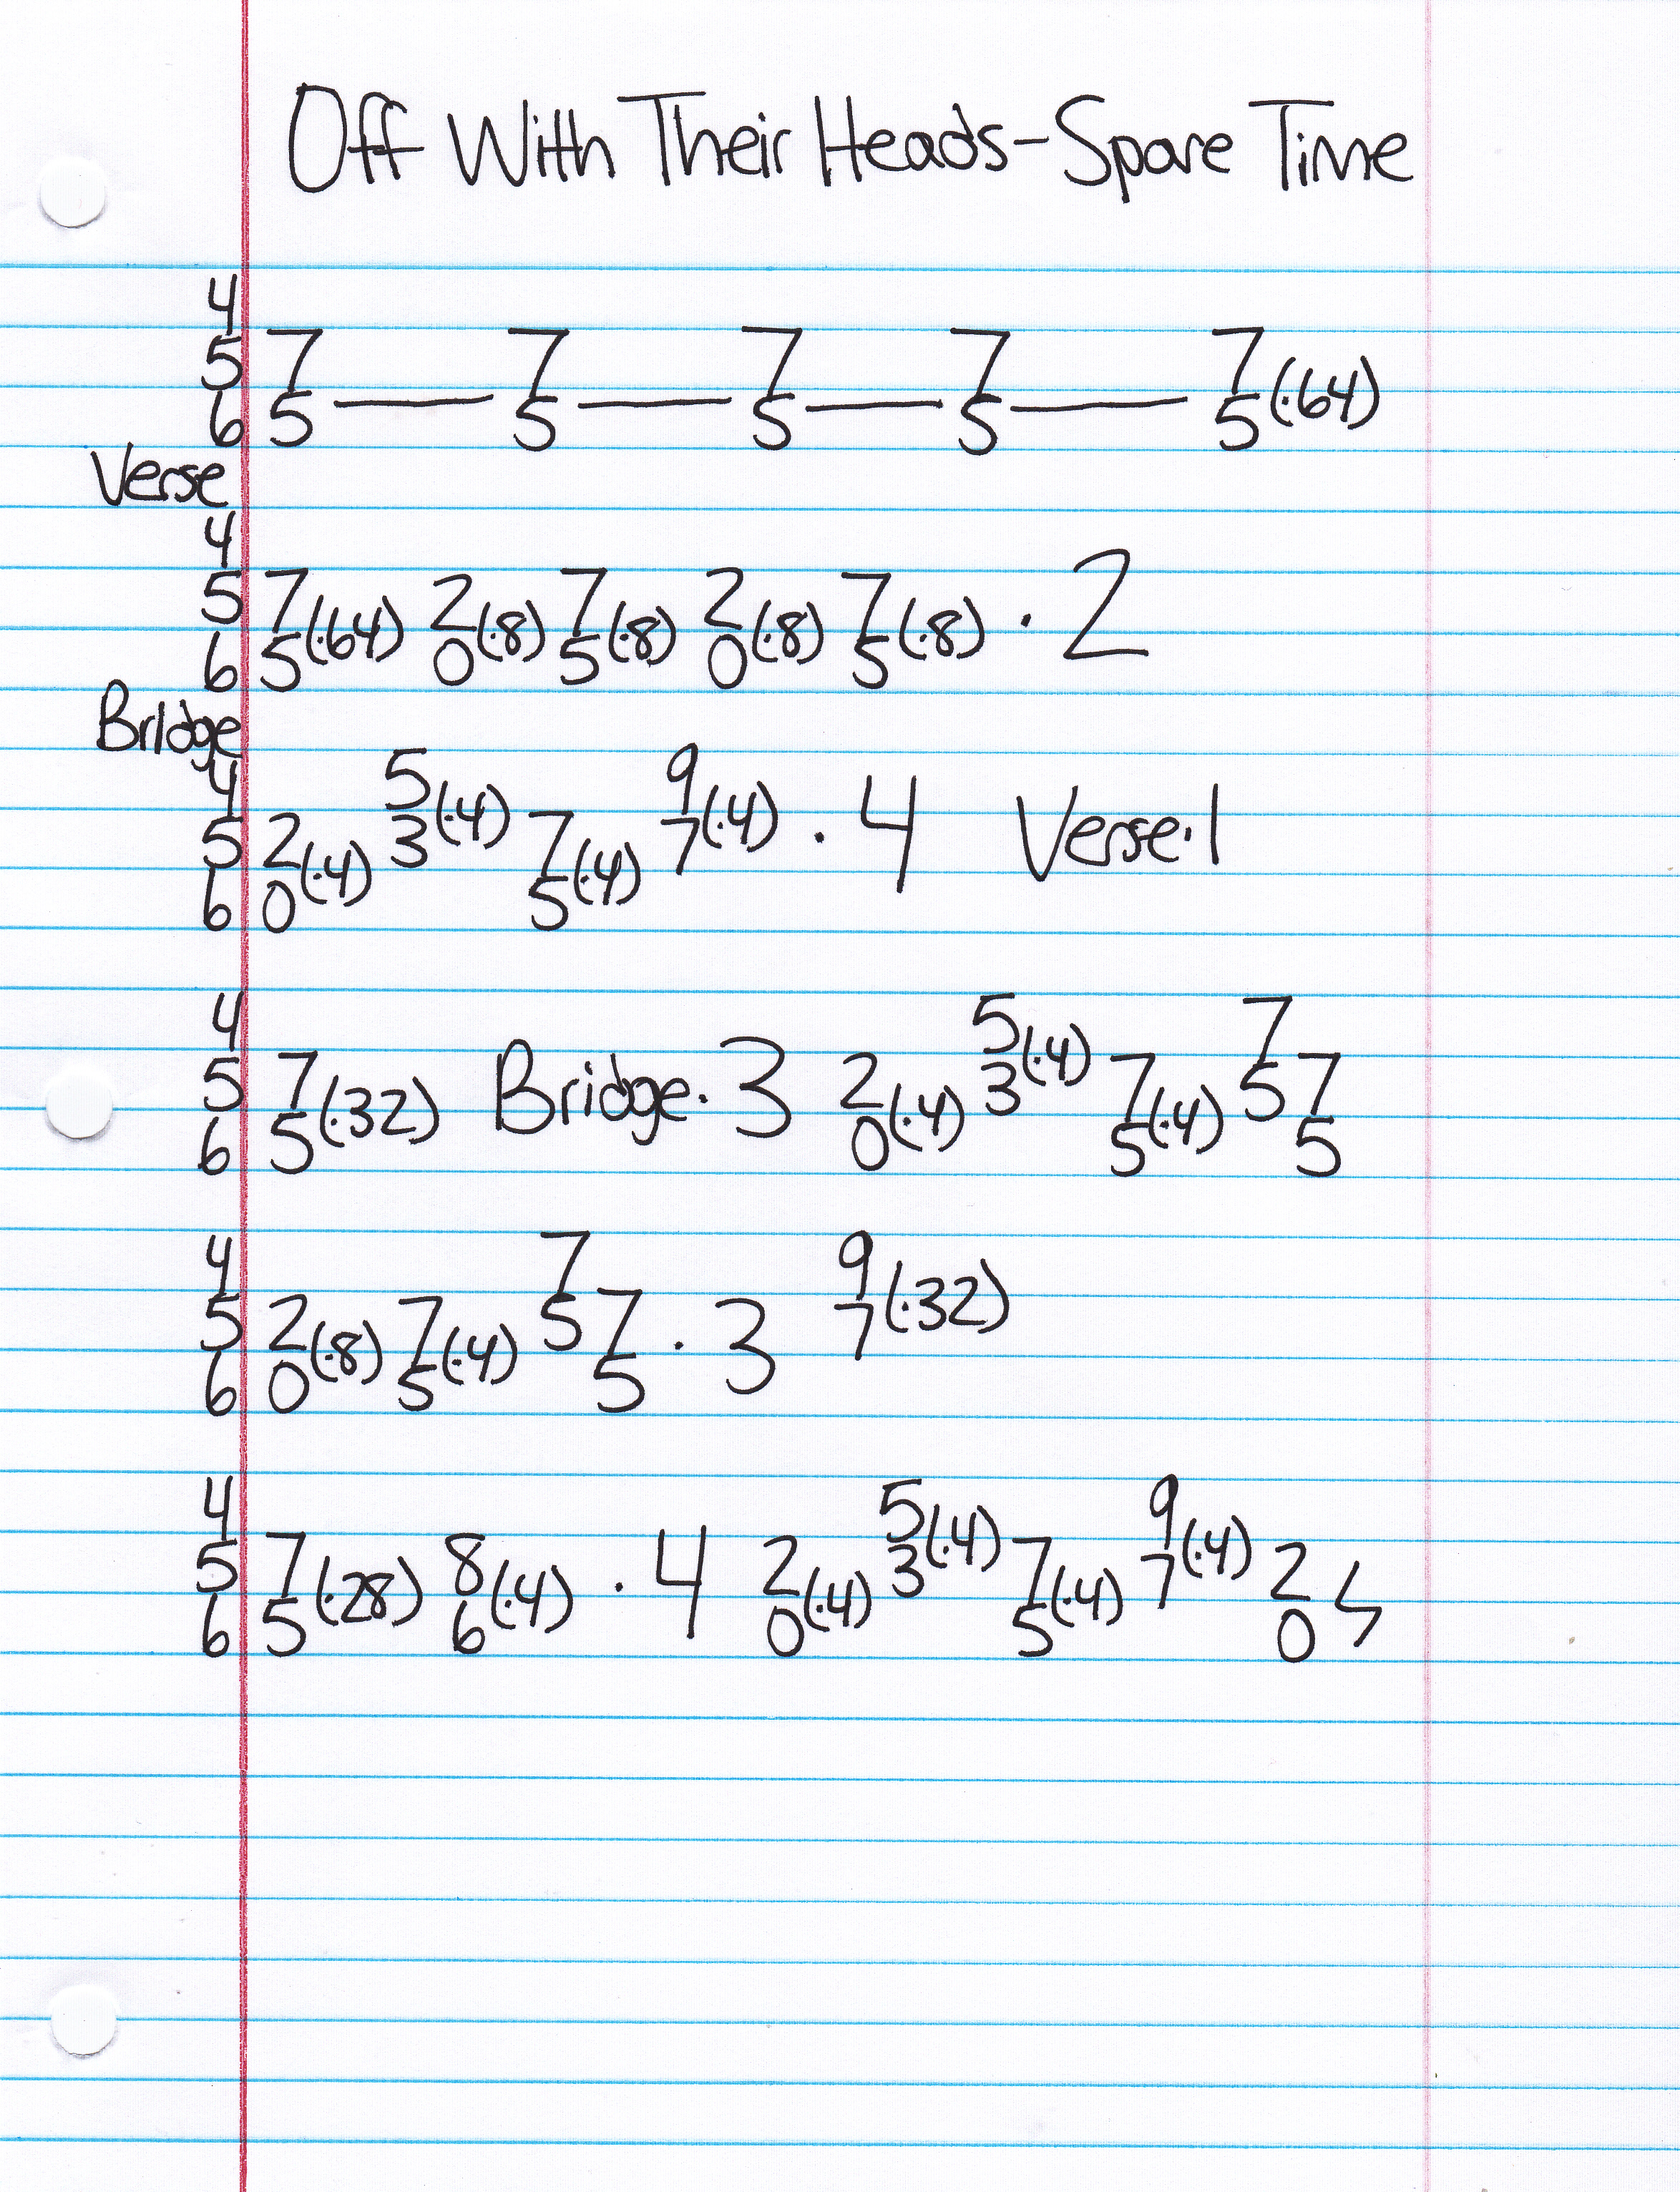 Off With Their Heads-Spare Time
4
5 7 7 7 7 7
6 5 — 5 — 5 — 5 — 5 (·64)
Verse
4
5 7 2 7 2 7
6 5 (·64) 0 (·8) 5 (·8) 0 (·8) 5 (·8) · 2
Bridge
4 5 9
5 2 3 (·4) 7 7 (·4) · 4 Verse·1
6 0 (·4) 5 (·4)
4 5 7
5 7 2 3 (·4) 7 5 7
6 5 (·32) Bridge·3 0 (·4) 5 (·4) 5
4 7 9
5 2 7 5 7 7 (·32)
6 0 (·8) 5 (·4) 5 · 3
4 5 9
5 7 8 2 3 (·4) 7 7 (·4) 2
6 5 (·28) 6 (·4) · 4 0 (·4) 5 (·4) 0